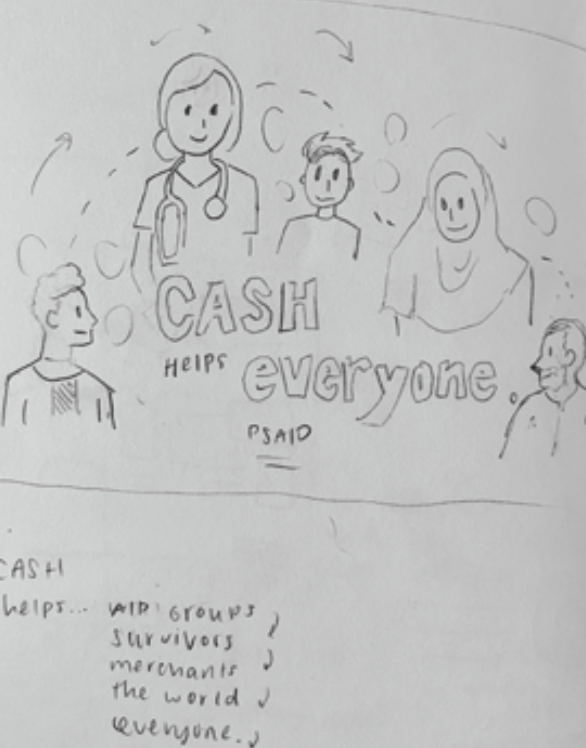 CASH
HELPS everyone.
PSAID
CASH
helps... AID groups,
survivors,
merchants,
the world,
everyone.,